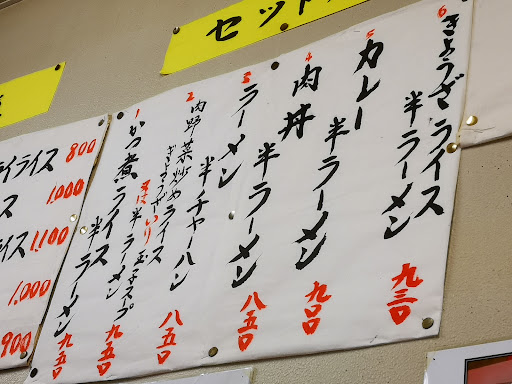 セット
6 ぎょうざライス
半ラーメン
九三〇
5 カレー
半ラーメン
九〇〇
4 肉丼
半ラーメン
八五〇
3 ラーメン
半チャーハン
八五〇
2 肉野菜炒めライス
又は半ラーメン 玉子スープ
九五〇
1 かつ煮ライス
半ラーメン
九五〇
ライライス 800
ス 1.000
イス 1.100
1.000
900